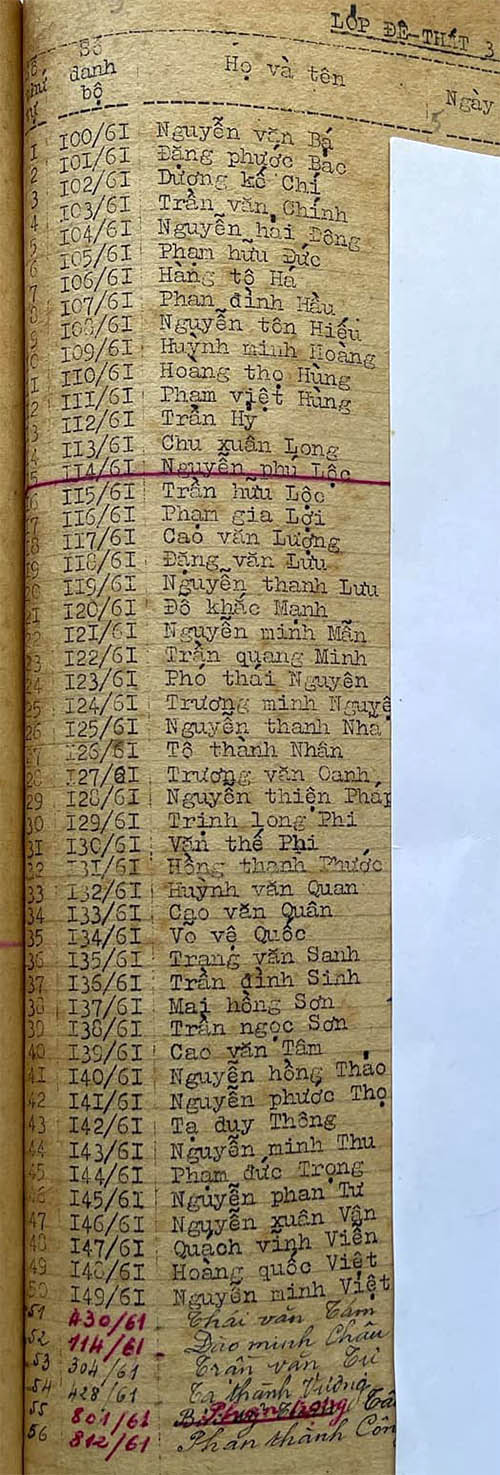 LỚP ĐỆ-THẤT 3
Số danh bộ Họ và tên Ngày
1 I00/6I Nguyễn văn Bá
2 I01/6I Đặng phước Bắc
3 I02/6I Dương kế Chí
4 I03/6I Trần văn Chính
5 I04/6I Nguyễn hải Đông
6 I05/6I Phạm hữu Đức
7 I06/6I Hàng tô Há
8 I07/6I Phan đình Hầu
9 I08/6I Nguyễn tôn Hiếu
10 I09/6I Huỳnh minh Hoàng
11 II0/6I Hoàng thọ Hùng
12 III/6I Phạm việt Hùng
13 II2/6I Trần Hỷ
14 II3/6I Chu xuân Long
15 II4/6I Nguyễn phú Lộc
16 II5/6I Trần hữu Lộc
17 II6/6I Phạm gia Lợi
18 II7/6I Cao văn Lượng
19 II8/6I Đặng văn Lưu
20 II9/6I Nguyễn thanh Lưu
21 I20/6I Đỗ khắc Mạnh
22 I2I/6I Nguyễn minh Mẫn
23 I22/6I Trần quang Minh
24 I23/6I Phó thái Nguyên
25 I24/6I Trương minh Nguyệ
26 I25/6I Nguyễn thanh Nhã
27 I26/6I Tô thành Nhân
28 I27/6I Trương văn Oanh
29 I28/6I Nguyễn thiện Pháp
30 I29/6I Trịnh long Phi
31 I30/6I Văn thế Phi
32 I3I/6I Hồng thanh Phước
33 I32/6I Huỳnh văn Quan
34 I33/6I Cao văn Quân
35 I34/6I Võ vệ Quốc
36 I35/6I Trang văn Sanh
37 I36/6I Trần đình Sinh
38 I37/6I Mai hồng Sơn
39 I38/6I Trần ngọc Sơn
40 I39/6I Cao văn Tâm
41 I40/6I Nguyễn hồng Thảo
42 I4I/6I Nguyễn phước Thọ
43 I42/6I Tạ duy Thông
44 I43/6I Nguyễn minh Thu
45 I44/6I Phạm đức Trọng
46 I45/6I Nguyễn phan Tư
47 I46/6I Nguyễn xuân Vân
48 I47/6I Quách vĩnh Viễn
49 I48/6I Hoàng quốc Việt
50 I49/6I Nguyễn minh Việt
51 430/61 Thái văn Tâm
52 114/61 Đào minh Châu
53 304/61 Trần văn Tư
54 428/61 Tạ thành Vương
55 801/61
56 812/61 Phan thành Côn